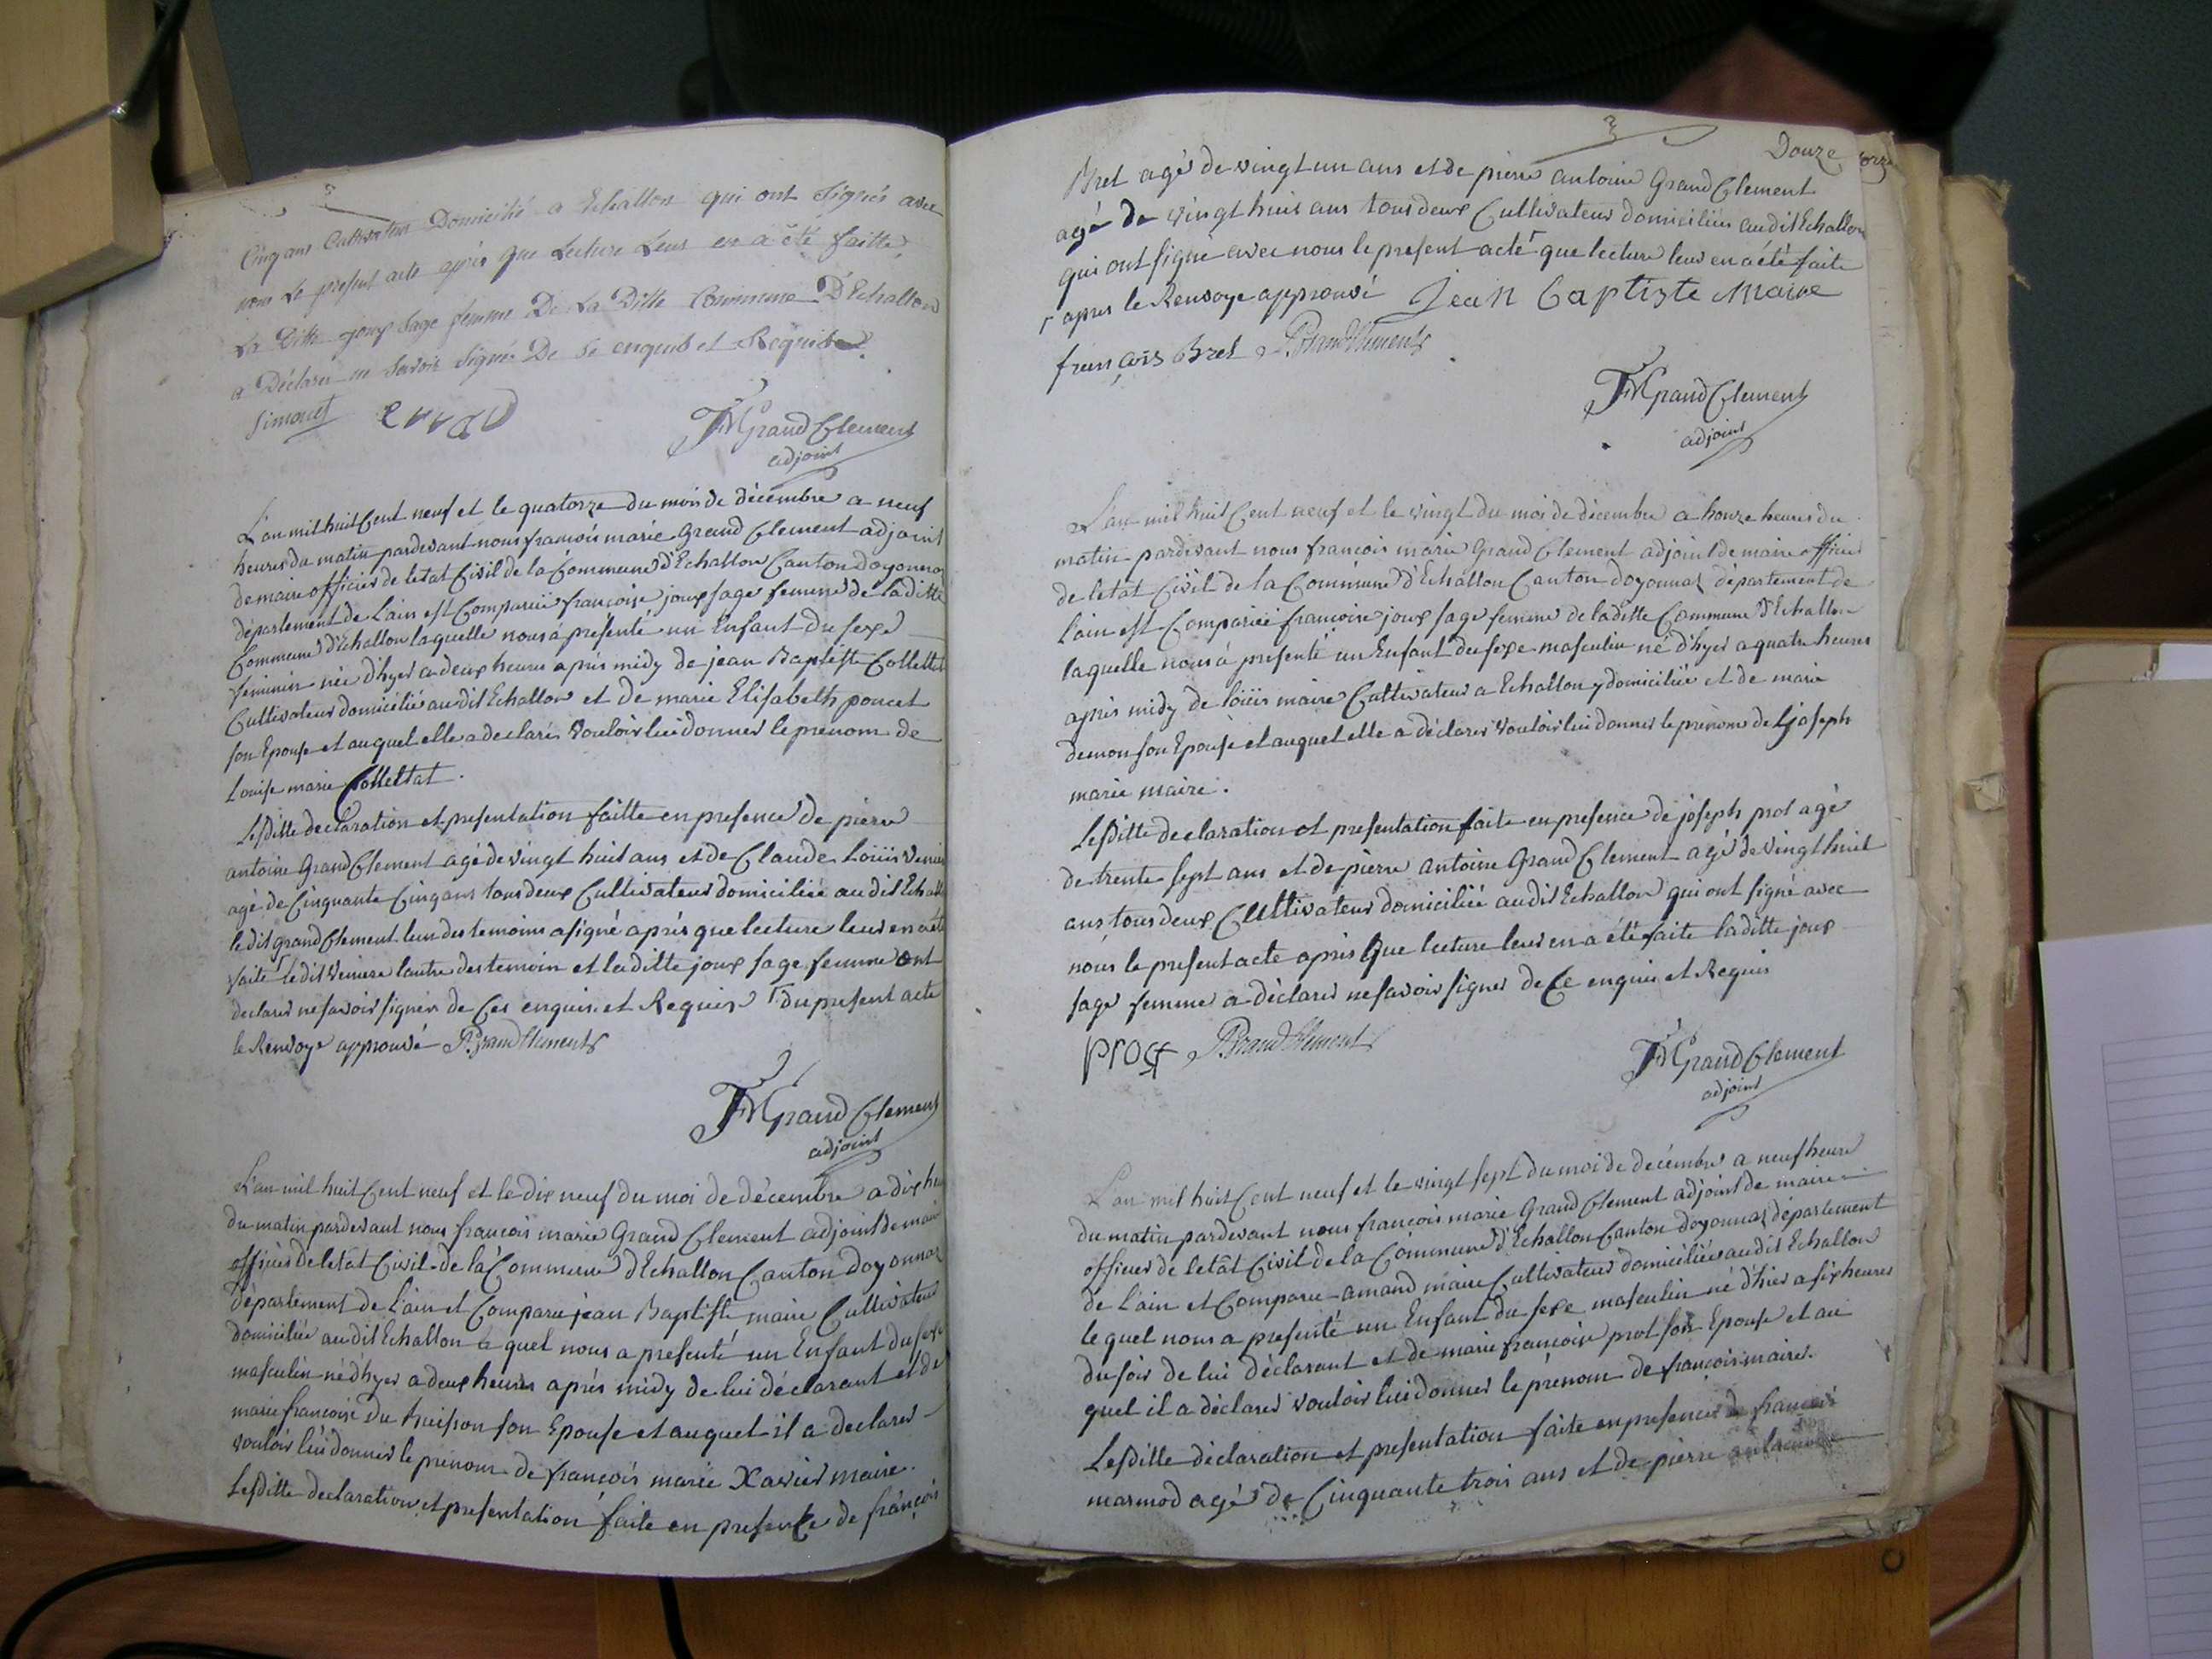 Cinq ans Cultivateur Domicilié a Echallon qui ont Signés avec
nous Le present acte après que Lecture Leur en a été faitte
La Ditte joux Sage femme De La Ditte Commune D'Echallon
a Déclaré ne Savoir Signé De Se enquis et Requise
Simonet
FMGrandClement
adjoint
L'an mil huit Cent neuf et le quatorze du mois de décembre a neuf
heures du matin pardevant nous francois marie Grand Clement adjoint
de maire officier de letat Civil de la Commune d'Echallon Canton doyonnaz
département de Lain est Comparüe francoise joux sage femme de la ditte
Commune d'Echallon laquelle nous a présenté un Enfant du sexe
feminin née d'hyer a deux heures après midy de jean Baptiste Collettat
Cultivateur domicilié audit Echallon et de marie Elisabeth poncet
son Epouse et auquel elle a declarés vouloir lui donner le prénom de
Louise marie Collettat.
Lesditte declaration et presentation faitte en presence de pierre
antoine Grand Clement agé de vingt huit ans et de Claude Loüis
agé de Cinquante Cinq ans tous deux Cultivateur domiciliée audit
ledit grand Clement lun des temoins a signé après que lecture leur en a été
faite ledit lautre des temoin et laditte joux sage femme ont
declarer ne savoir signér de Ces enquis et Requis du present acte
le Renvoye approuvé P.GrandClement
FMGrandClement
adjoint
L'an mil huit Cent neuf et le dix neuf du moi de décembre a dix
du matin pardevant nous francois marie Grand Clement adjoint de maire
officier de letat Civil de la Commune d'Echallon Canton doyonnaz
département de L'ain et Comparu jean Baptiste maire Cultivateur
domiciliée audit Echallon le quel nous a presenté un Enfant du sexe
masculin né d'hyer a deux heures après midy de lui déclarant et de
marie francoise son Epouse et auquel il a declarer
vouloir lui donner le prénom de francois marie Xavier maire.
Lesditte declaration et presentation faite en presence de françois
Douze
Bret agé de vingt un ans et de pierre antoine Grand Clement
agé de vingt huit ans tous deux Cultivateur domiciliée audit Echallon
qui ont signé avec nous le present acte que lecture leur en a été faite
apres le Renvoye approuvé Jean Baptiste Maire
françois Bret P.GrandClement
FMGrandClement
adjoint
L'an mil huit Cent neuf et le vingt du moi de décembre a honze heures du
matin pardevant nous francois marie Grand Clement adjoint de maire officier
de letat Civil de la Commune d'Echallon Canton doyonnaz département de
Lain est Comparüe francoise joux sage femme de laditte Commune d'Echallon
laquelle nous a présenté un Enfant du sexe masculin né d'hyer a quatre heures
après midy de loüis maire Cultivateur a Echallon y domiciliée et de marie
demon son Epouse et auquel elle a déclarer vouloir lui donner le prénom de joseph
marie maire.
Lesditte declaration et presentation faite en presence de joseph prot agé
de trente sept ans et de pierre antoine Grand Clement agé de vingt huit
ans tous deux Cultivateur domiciliée audit Echallon qui ont signé avec
nous le present acte après que lecture leur en a été faite laditte joux
sage femme a déclarer ne savoir signer de Ce enquis et Requis
prost P.GrandClement
FMGrandClement
adjoint
L'an mil huit Cent neuf et le vingt sept du moi de decémbre a neuf heure
du matin pardevant nous francois marie Grand Clement adjoint de maire
officier de letât Civil de la Commune d'Echallon Canton doyonnaz département
de L'ain et Comparu amand maire Cultivateur domiciliée audit Echallon
le quel nous a presenté un Enfant du sexe masculin né d'hier a six heures
du soir de lui déclarant et de marie francoise prot son Epouse et au
quel il a déclarer vouloir lui donner le prénom de francois maire.
Lesditte déclaration et presentation faite en presence de francois
marmod agé de Cinquante trois ans et de pierre